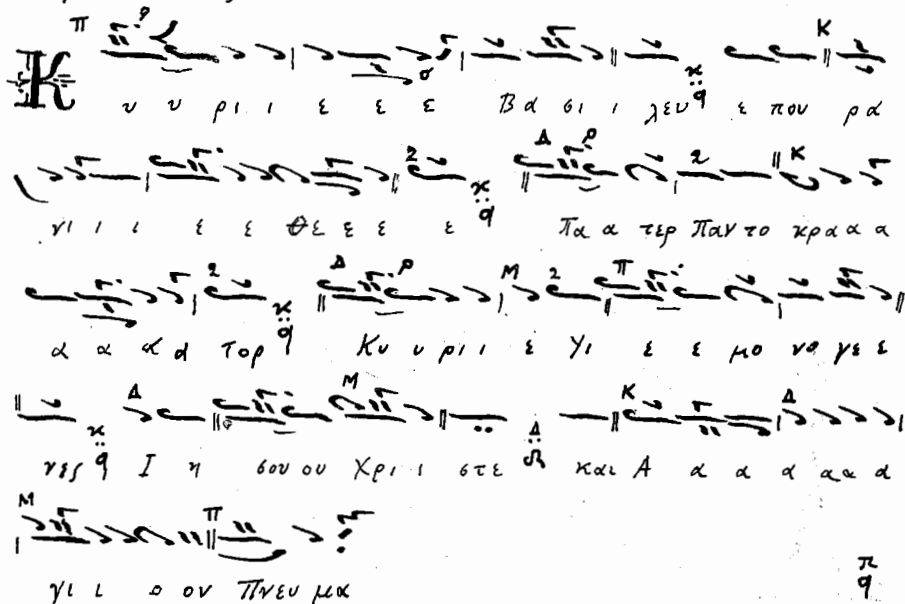 Κ υ υ ρι ι ε ε ε Βα σι ι λευ ε που ρα
νι ι ι ε ε Θε ε ε ε Πα α τερ Παν το κρα α α
α α α α τορ Κυ υ ρι ι ε Υι ε ε μο νο γε ε
νες Ι η σου ου Χρι ι στε και Α α α α α α α
γι ι ο ον Πνευ μα